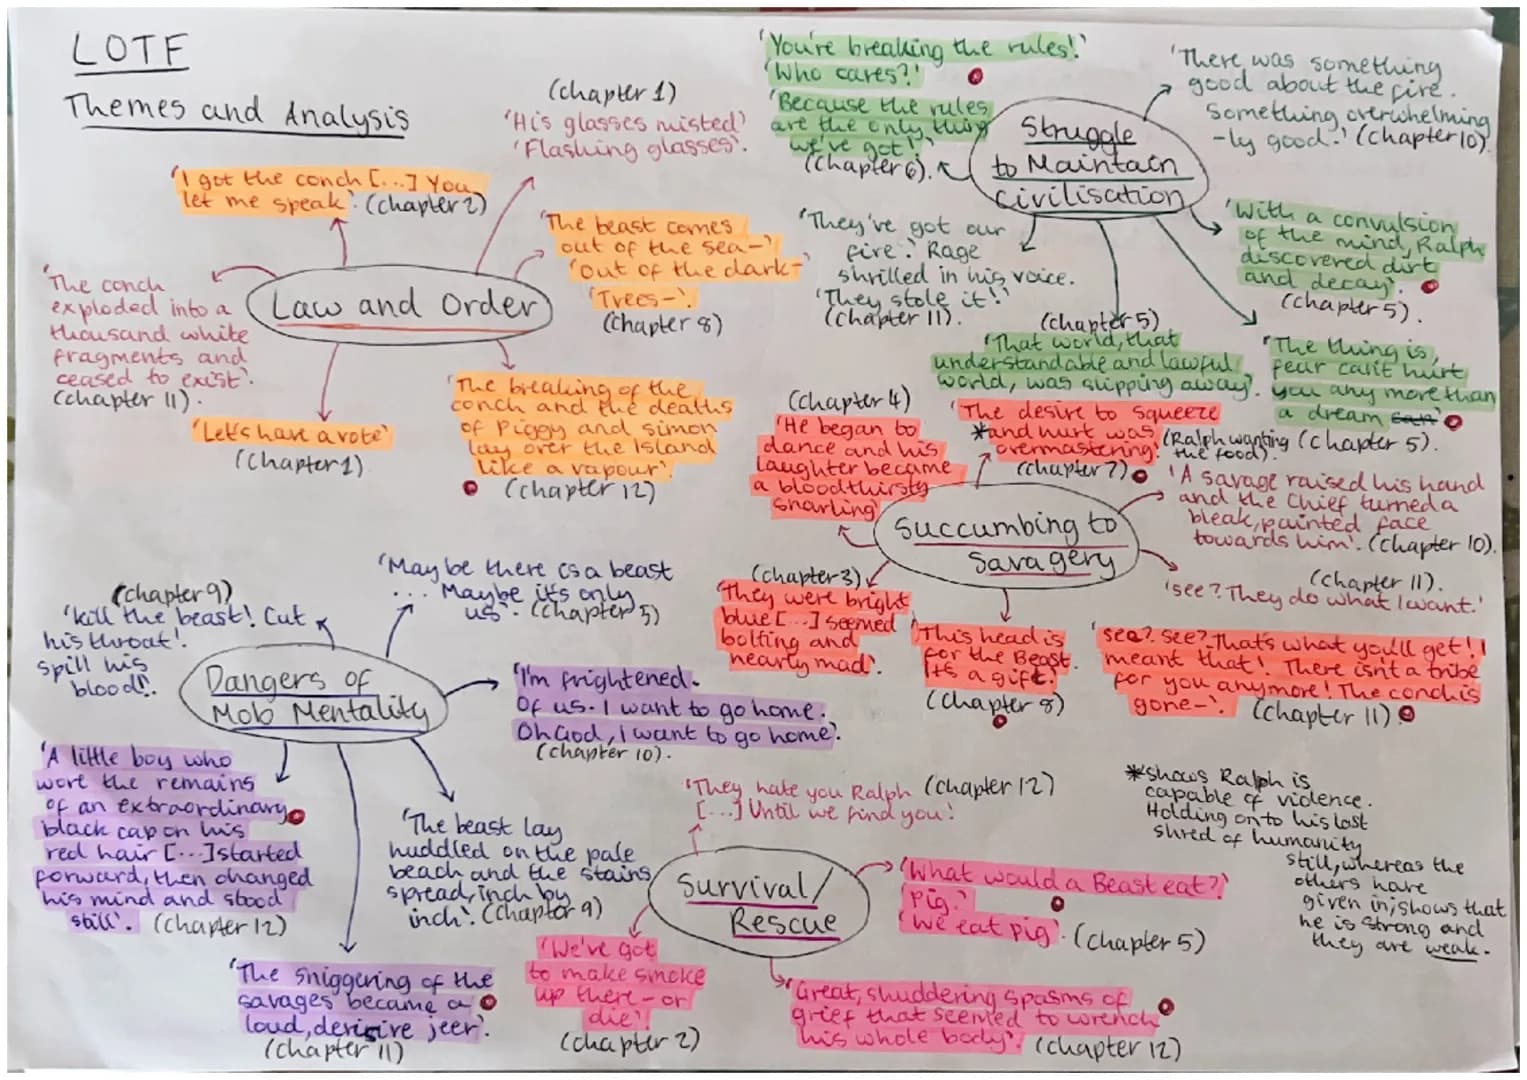 LOTF
Themes and Analysis
(chapter 1)
'His glasses misted'
'Flashing glasses'.
'I got the conch [...] You
let me speak'. (chapter 2)
'The beast comes
out of the sea-'
'out of the dark-'
'Trees-'.
(chapter 8)
Law and Order
'The conch
exploded into a
thousand white
fragments and
ceased to exist'.
(chapter 11).
'Let's have a vote'
(chapter 1)
'The breaking of the
conch and the deaths
of Piggy and Simon
lay over the Island
like a vapour'
(chapter 12)
'You're breaking the rules!'
'Who cares?'
'Because the rules
are the only thing
we've got!'
(chapter 6).
Struggle
to Maintain
civilisation
'There was something
good about the fire.
Something overwhelming
-ly good.' (chapter 10).
'They've got our
fire.' Rage
shrilled in his voice.
'They stole it!'
(chapter 11).
'With a convulsion
of the mind, Ralph
discovered dirt
and decay'.
(chapter 5).
(chapter 5)
'That world, that
understandable and lawful
world, was slipping away'.
'The thing is,
fear can't hurt
you any more than
a dream can'
(chapter 5).
(chapter 4)
'He began to
dance and his
laughter became
a bloodthirsty
snarling'
'The desire to squeeze
*and hurt was
overmastering'.
(Ralph wanting
the food).
(chapter 7)
Succumbing to
Savagery
'A savage raised his hand
and the Chief turned a
bleak, painted face
towards him'. (chapter 10).
(chapter 11).
'see? They do what I want.'
(chapter 3)
'They were bright
blue [...] seemed
bolting and
nearly mad'.
'This head is
for the Beast.
It's a gift'.
(chapter 8)
'see? see? That's what you'll get! I
meant that! There isn't a tribe
for you anymore! The conch is
gone-'. (chapter 11)
*shows Ralph is
capable of violence.
Holding on to his last
shred of humanity
still, whereas the
others have
given in; shows that
he is strong and
they are weak.
(chapter 9)
'kill the beast! Cut
his throat!
spill his
blood!'.
'Maybe there is a beast
... Maybe it's only
us'. (chapter 5)
Dangers of
Mob Mentality
'I'm frightened.
Of us. I want to go home.
Oh God, I want to go home'.
(chapter 10).
'A little boy who
wore the remains
of an extraordinary
black cap on his
red hair [...] started
forward, then changed
his mind and stood
still'. (chapter 12)
'The beast lay
huddled on the pale
beach and the stains
spread, inch by
inch'. (chapter 9)
'The sniggering of the
savages became a
loud, derisive jeer'.
(chapter 11)
'They hate you Ralph (chapter 12)
[...] Until we find you!'
Survival/
Rescue
'What would a Beast eat?'
'Pig.'
'We eat pig'. (chapter 5)
'We've got
to make smoke
up there - or
die'.
(chapter 2)
'Great, shuddering spasms of
grief that seemed to wrench
his whole body'. (chapter 12)